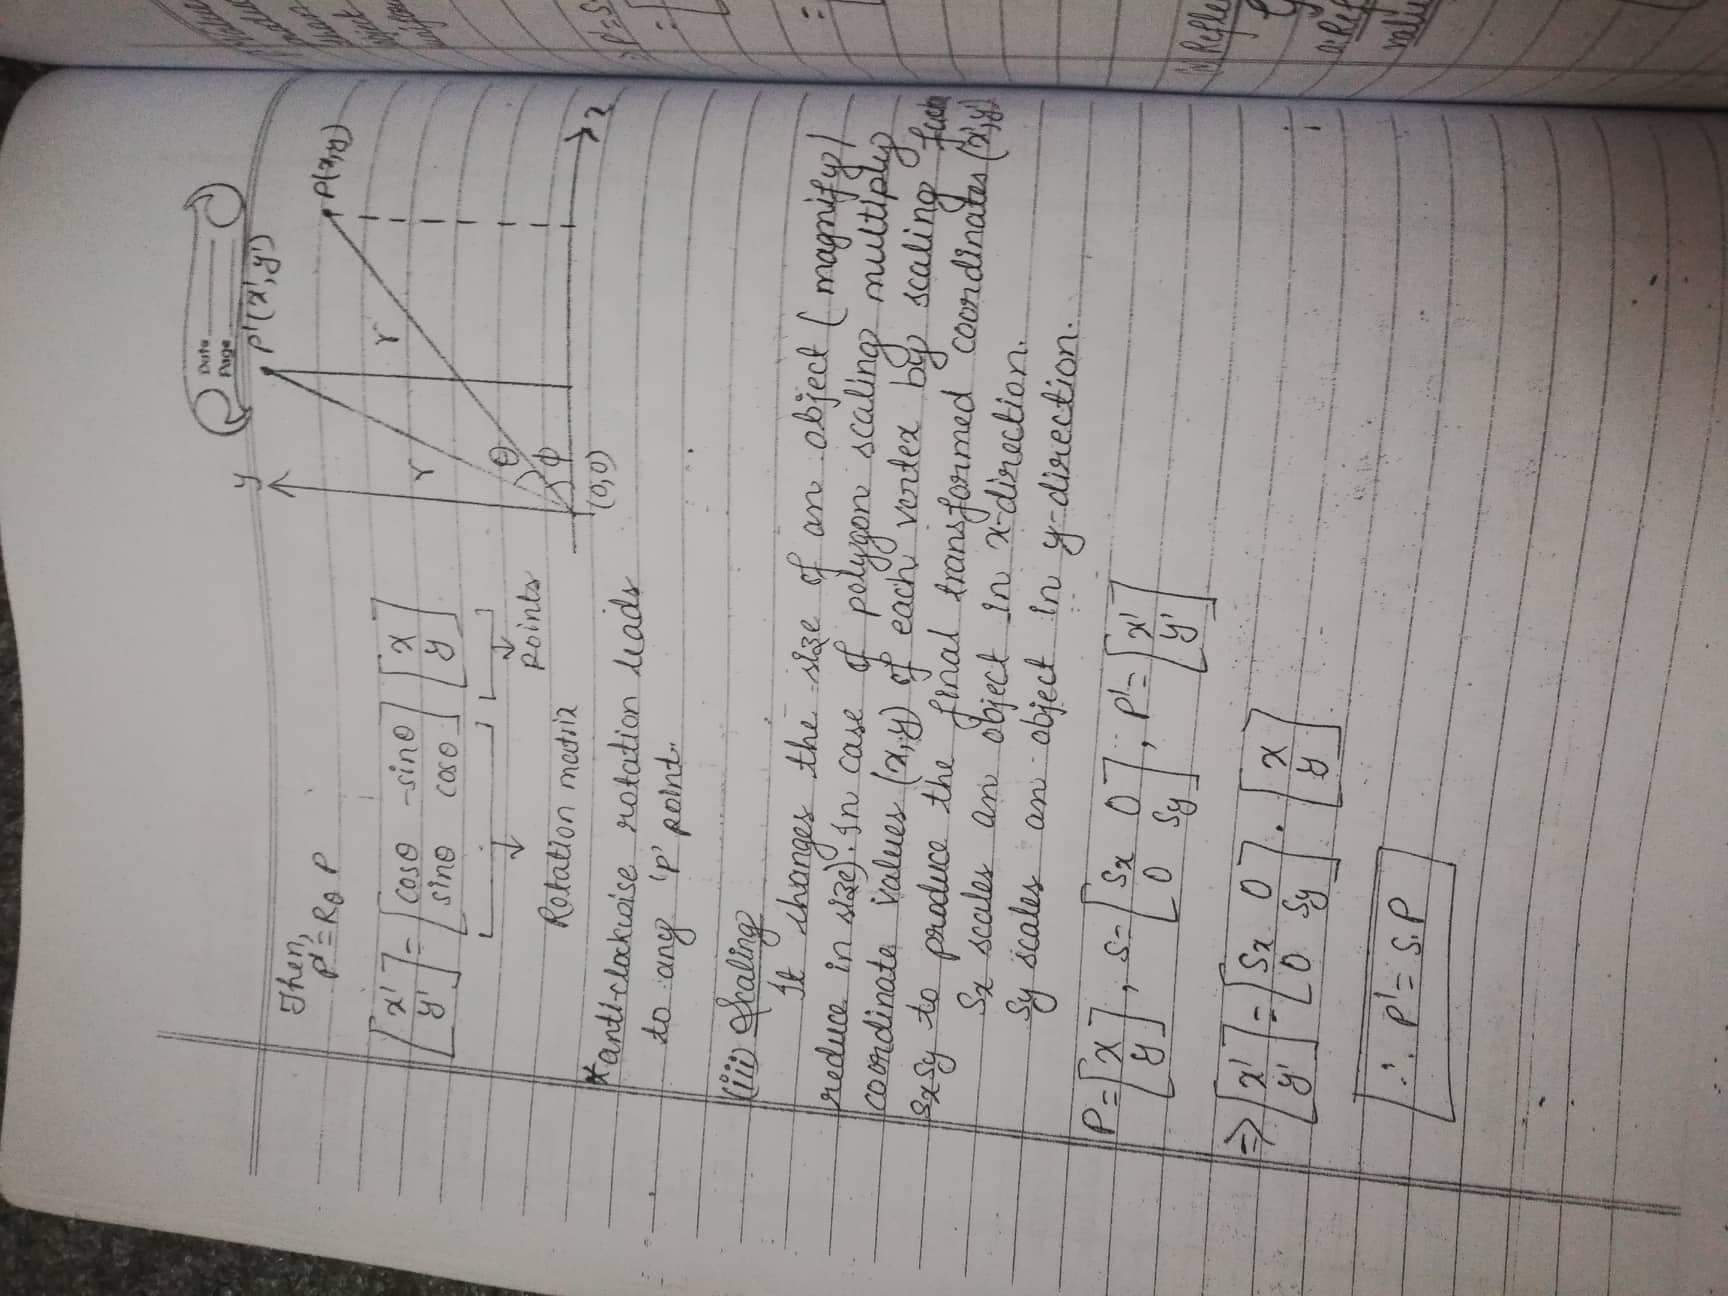 Date
Page
Then,
P' = Rθ P
[x' y'] = [cosθ -sinθ sinθ cosθ] [x y]
Rotation matrix
Points
*anti-clockwise rotation leads
to any 'P' point.
y
P'(x', y')
P(x,y)
r
r
θ
φ
(0,0)
x
(iii) Scaling
It changes the size of an object (magnify/
reduce in size). In case of polygon scaling multiply
coordinate values (x,y) of each vertex by scaling
Sx Sy to produce the final transformed coordinates (x',y')
Sx scales an object in x-direction.
Sy scales an object in y-direction.
P = [x y], S = [Sx 0 0 Sy], P' = [x' y']
⇒ [x' y'] = [Sx 0 0 Sy] . [x y]
∴ P' = S.P
object
P' = S